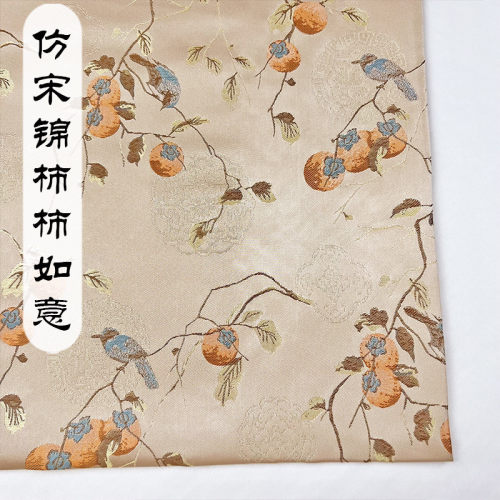 仿宋锦柿柿如意